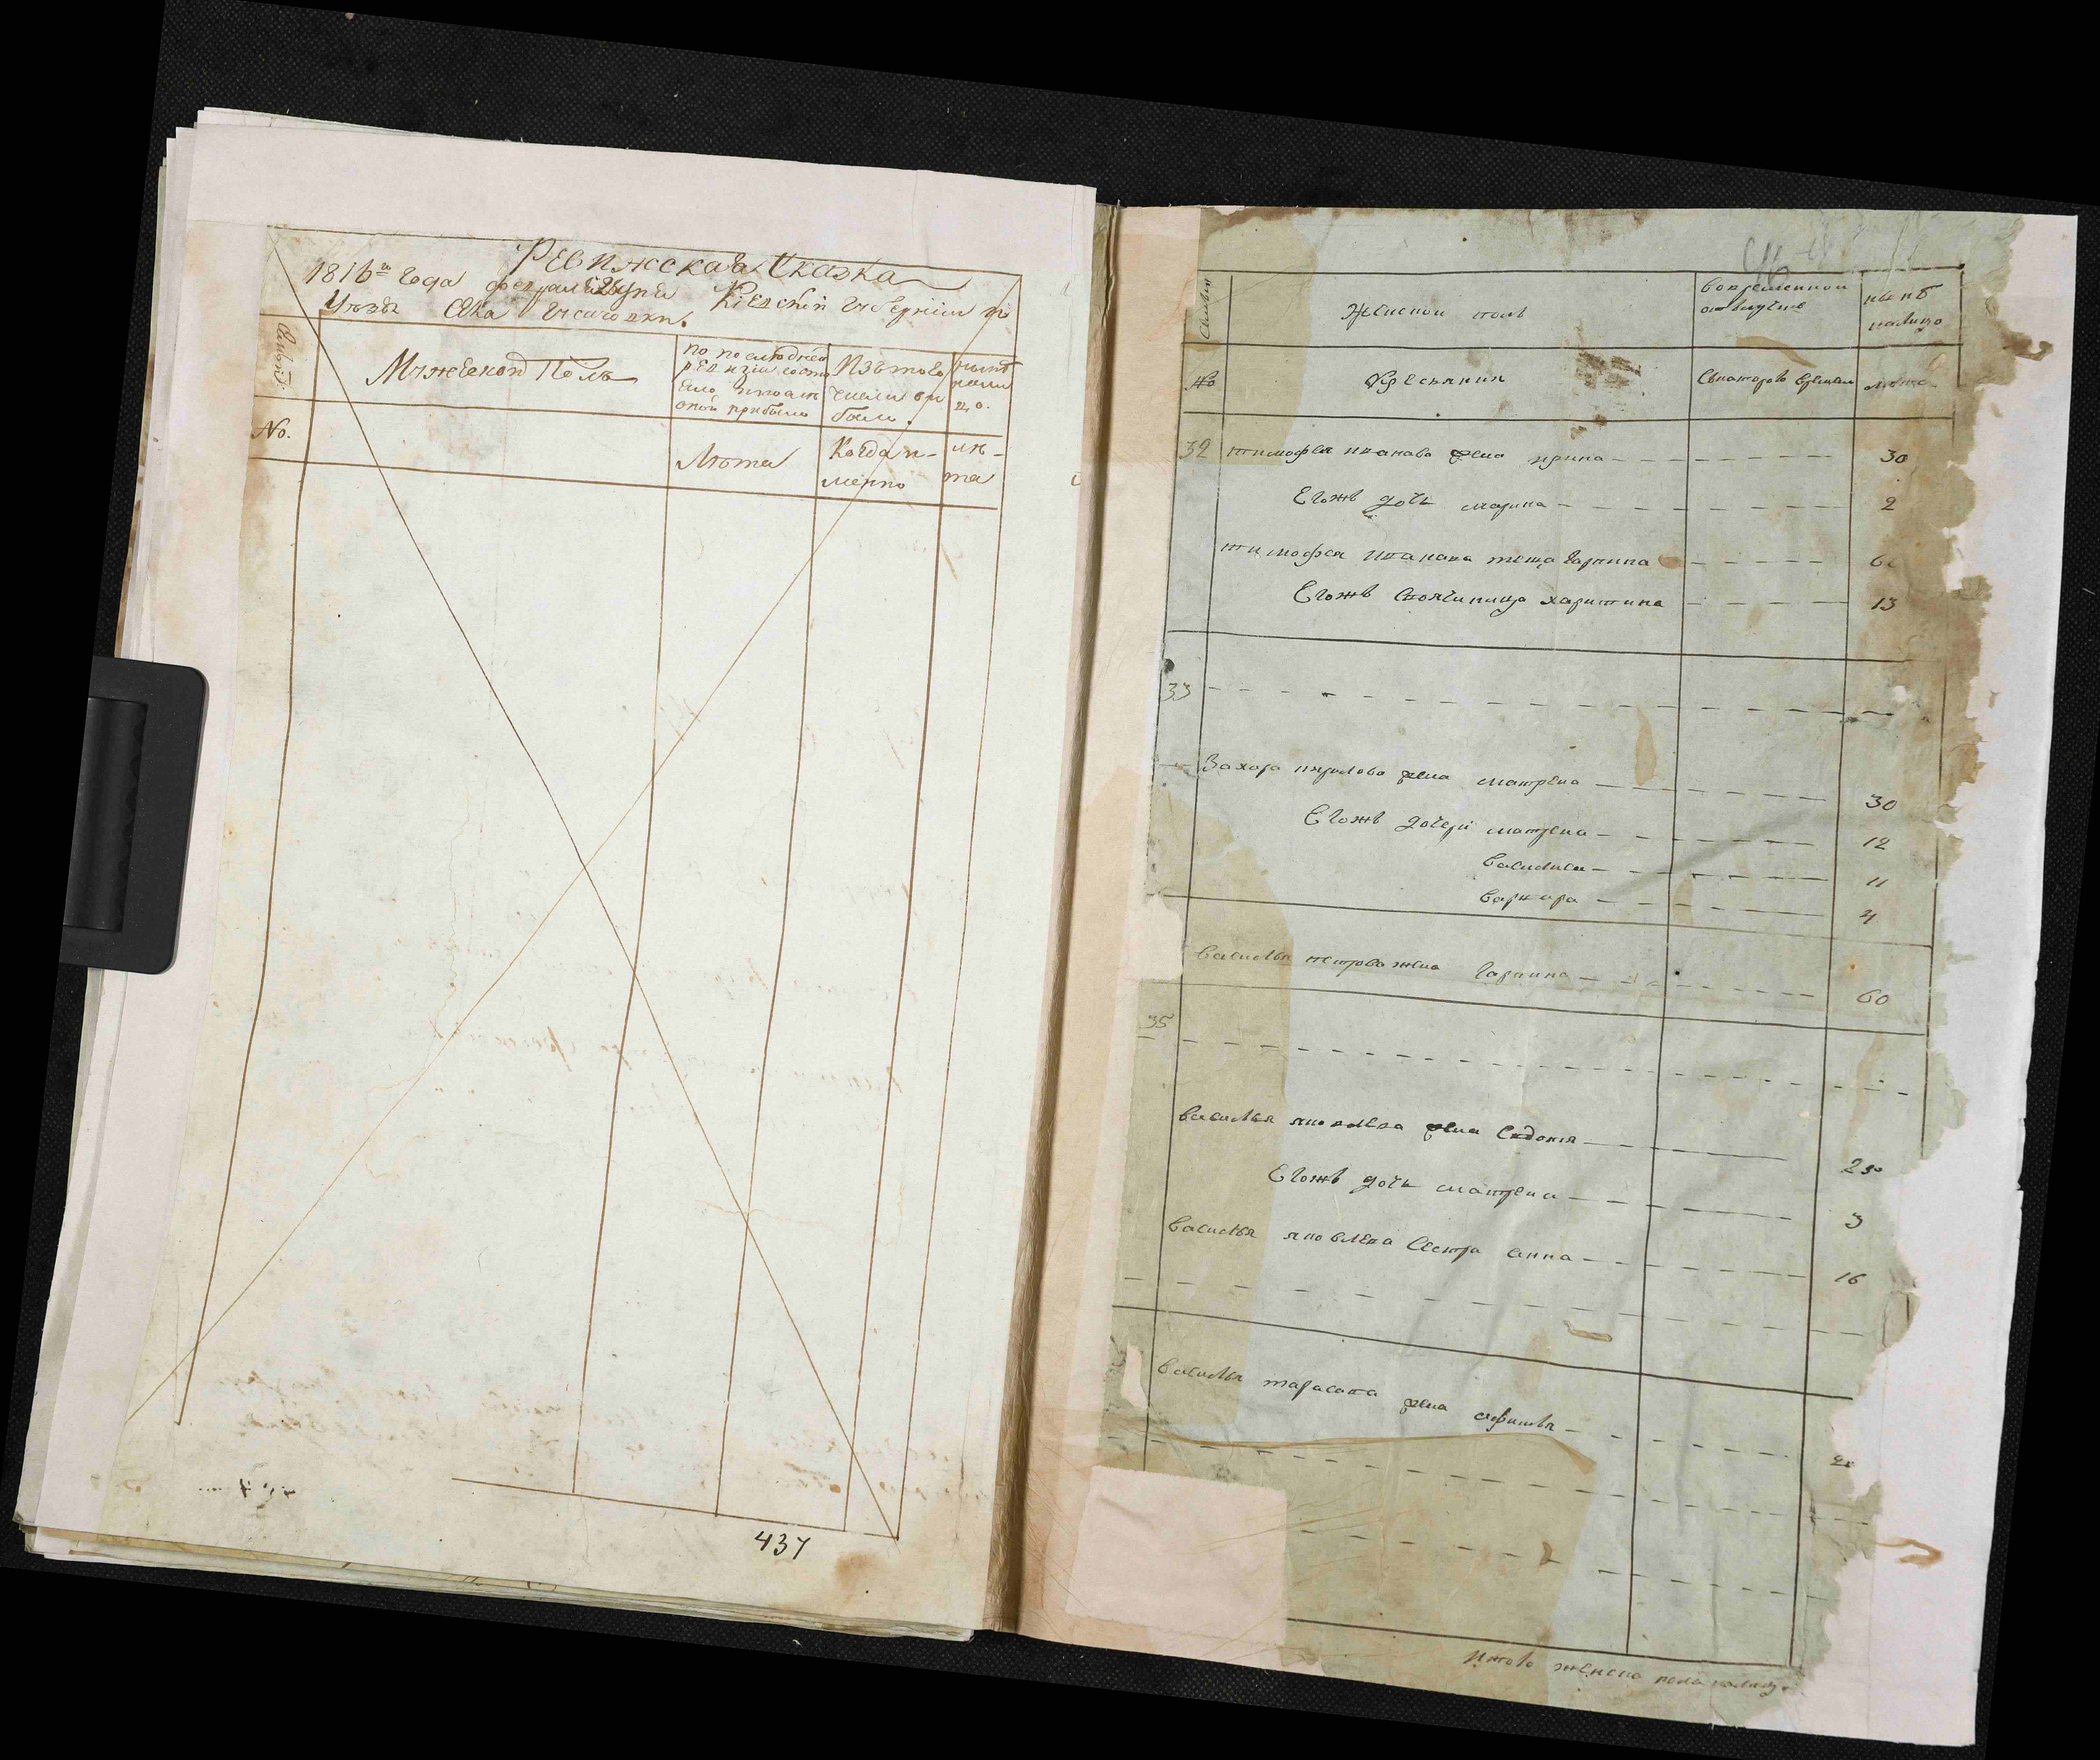 Ревижская Сказка
1816го года февраля 28 дня Кіевской Губерніи
Уезда Села
Мужеской Полъ
по последней ревизіи состояло
Изътого числа выбыло
ныне налицо
No.
Лета
Когда именно
лета
437
Женской полъ
вовременной отлучке
ныне налицо
No
Крестьянин
Скоторого времени
лета
32 тимофея иванова жена ирина 30
Егожъ дочь марина 2
тимофея иванова теща гарпина
Егожъ своячиница харитина 13
33
Захара жена матрена 30
Егожъ дочери матрена 12
василиса 11
варвара 4
василья петрова жена гарпина 60
35
василья яковлева жена Евдокия
Егожъ дочь матрена 3
василья яковлева Сестра анна 16
василья тарасова жена
Итого женска пола налицо